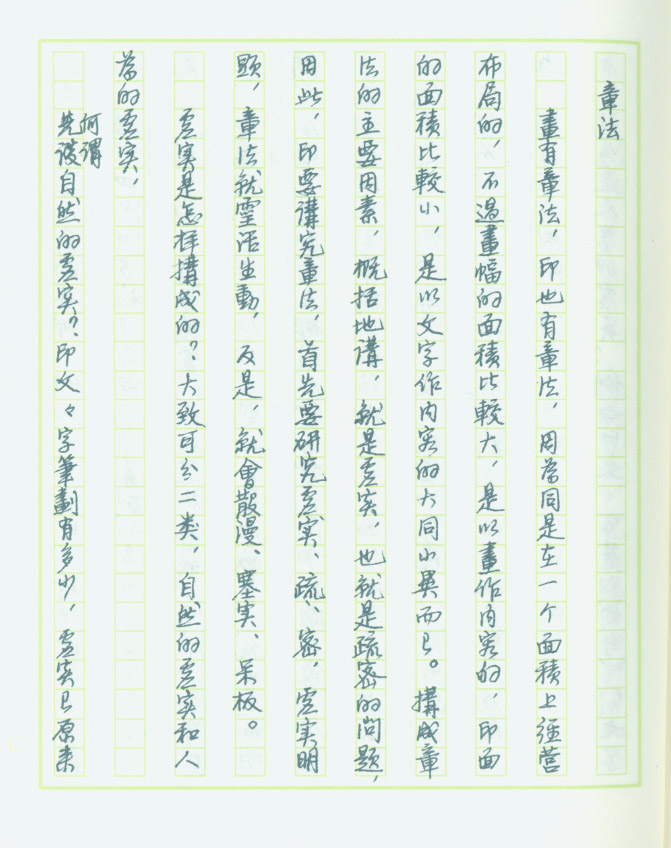 章法
畫有章法，印也有章法，因為同是在一个面積上經营
布局的，不過畫幅的面積比較大，是以畫作内客的，印面
的面積比較小，是以文字作内客的大同小異而已。搆成章
法的主要因素，概括地講，就是虚实，也就是疏密的问题，
因此，印要講究章法，首先要研究虚实、疏、密，虚实明
题，章法就靈活生動，反是，就會散漫、塞实、呆板。
虚实是怎样搆成的？大致可分二类，自然的虚实和人
為的虚实，
先談自然的虚实？印文々字筆劃有多少，虚实已原来
何谓